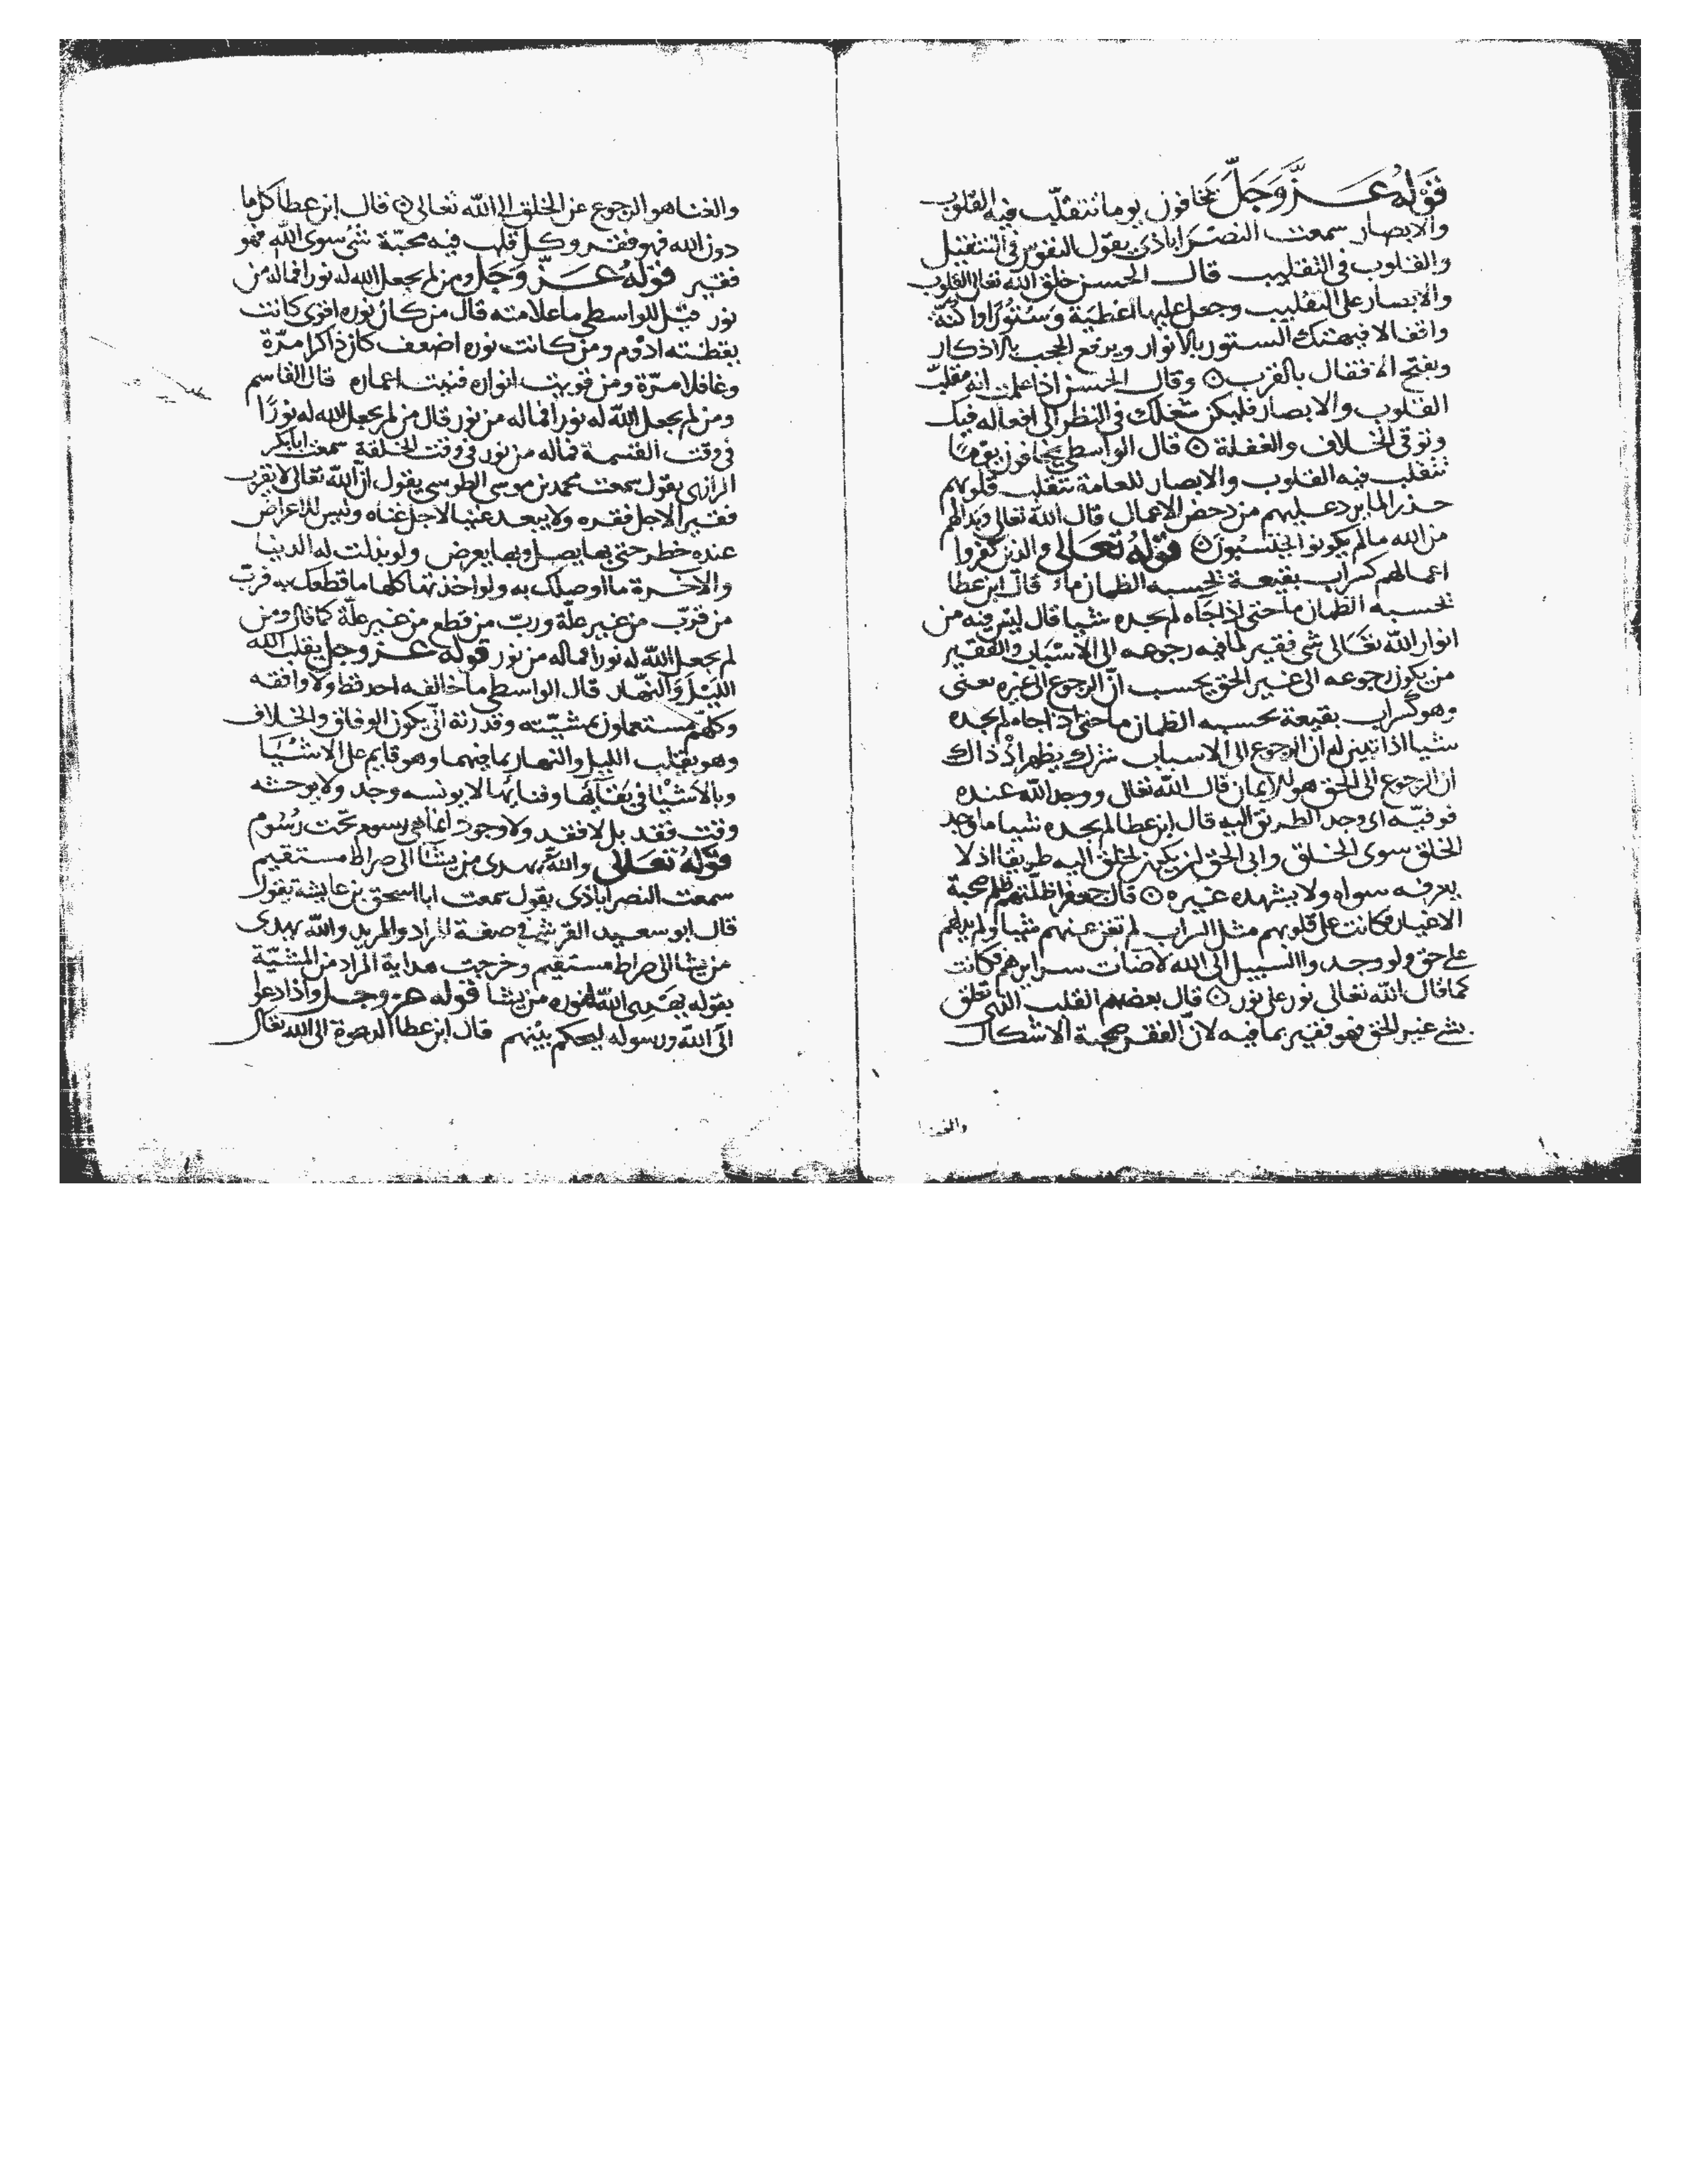 قوله عز وجل يخافون يوما تتقلب فيه القلوب
والابصار سمعت النصراباذى يقول النفوس فى التنقيل
والقلوب فى التقليب قال الحسن خلق الله تعالى القلوب
والابصار على التقليب وجعل عليها اغطية وستورا واكنة
واقفالا فيهتك الستور بالانوار ويرفع الحجب بالاذكار
ويفتح الاقفال بالقرب وقال الحسن اذا علمت انه مقلب
القلوب والابصار فليكن شغلك فى النظر الى افعاله فيك
وتوقى الخلاف والغفلة قال الواسطى يخافون يوما
تتقلب فيه القلوب والابصار للعامة تتقلب قلوبهم
حذر الما يرد عليهم من دحض الاعمال قال الله تعالى وبدا لهم
من الله ما لم يكونوا يحتسبون قوله تعالى والذين كفروا
اعمالهم كسراب بقيعة يحسبه الظمان ماء قال ابن عطا
يحسبه الظمان ما حتى اذا جاه لم يجده شيا قال ليس فيه من
انوار الله تعالى شى فقير لما فيه رجوعه الى الاسباب والفقير
من يكون رجوعه الى غير الحق يحسب ان الرجوع الى غيره يعنى
وهو كسراب بقيعة يحسبه الظمان ما حتى اذا جاه لم يجده
شيا اذا تبين له ان الرجوع الى الاسباب شرك يظهر اذ ذاك
ان الرجوع الى الحق هو الايمان قال الله تعالى ووجد الله عنده
فوفيه اى وجد الطريق اليه قال ابن عطا لم يجده شيا ما وجد
الخلق سوى الخلق وابى الحق لن يكون لخلق اليه طريقا اذ لا
يعرفه سواه ولا يشهده غيره قال جعفر اظلتهم ظلم صحبة
الاغيار فكانت على قلوبهم مثل السراب لم تغن عنهم شيا ولم يدلهم
على حق ولو وجدوا السبيل الى الله لاضات سرايرهم فكانت
كما قال الله تعالى نور على نور قال بعضهم القلب الذى تعلق
بشى غير الحق فهو فقير بما فيه لان الفقر صحبة الاشكال
والغنا
والغنا هو الرجوع عن الخلق الى الله تعالى قال ابن عطا كل ما
دون الله فهو فقر وكل قلب فيه محبة شى سوى الله فهو
فقير قوله عز وجل ومن لم يجعل الله له نورا فما له من
نور قيل للواسطى ما علامته قال من كان نوره اقوى كانت
يقظته ادوم ومن كانت نوره اضعف كان ذاكرا مرة
وغافلا مرة ومن قويت انواره فنيت اعماره قال القاسم
ومن لم يجعل الله له نورا فما له من نور قال من لم يجعل الله له نورا
فى وقت القسمة فما له من نور فى وقت الخلقة سمعت ابابكر
الرازى يقول سمعت محمد بن موسى الطوسى يقول ان الله تعالى لا يقرب
فقيرا لاجل فقره ولا يبعد غنيا لاجل غناه وليس للاعراض
عنده خطر حتى بها يصل وبها يعرض ولو بذلت له الدنيا
والاخرة ما اوصلك به ولو اخذتها كلها ما قطعك به قرب
من قرب من غير علة ورب من قطع من غير علة كما قال ومن
لم يجعل الله له نورا فما له من نور قوله عز وجل يقلب الله
الليل والنهار قال الواسطى ما خالفه احد قط ولا وافقه
وكلهم مستعملون بمشيته وقدرته انى يكون الوفاق والخلاف
وهو يقلب الليل والنهار بما فيهما وهو قايم على الاشيا
وبالاشيا فى بقايها وفنايها لا يونسه وجد ولا يوحشه
وقت فقد بل لا فقد ولا وجود انما هى رسوم تحت رسوم
قوله تعالى والله يهدى من يشا الى صراط مستقيم
سمعت النصراباذى يقول سمعت ابا اسحق بن عايشة يقول
قال ابو سعيد القرشى فى صفة المراد والمريد والله يهدى
من يشا الى صراط مستقيم وخرجت هداية المراد من المشية
بقوله يهدى الله لنوره من يشا قوله عز وجل واذا دعوا
الى الله ورسوله ليحكم بينهم قال ابن عطا الدعوة الى الله تعالى